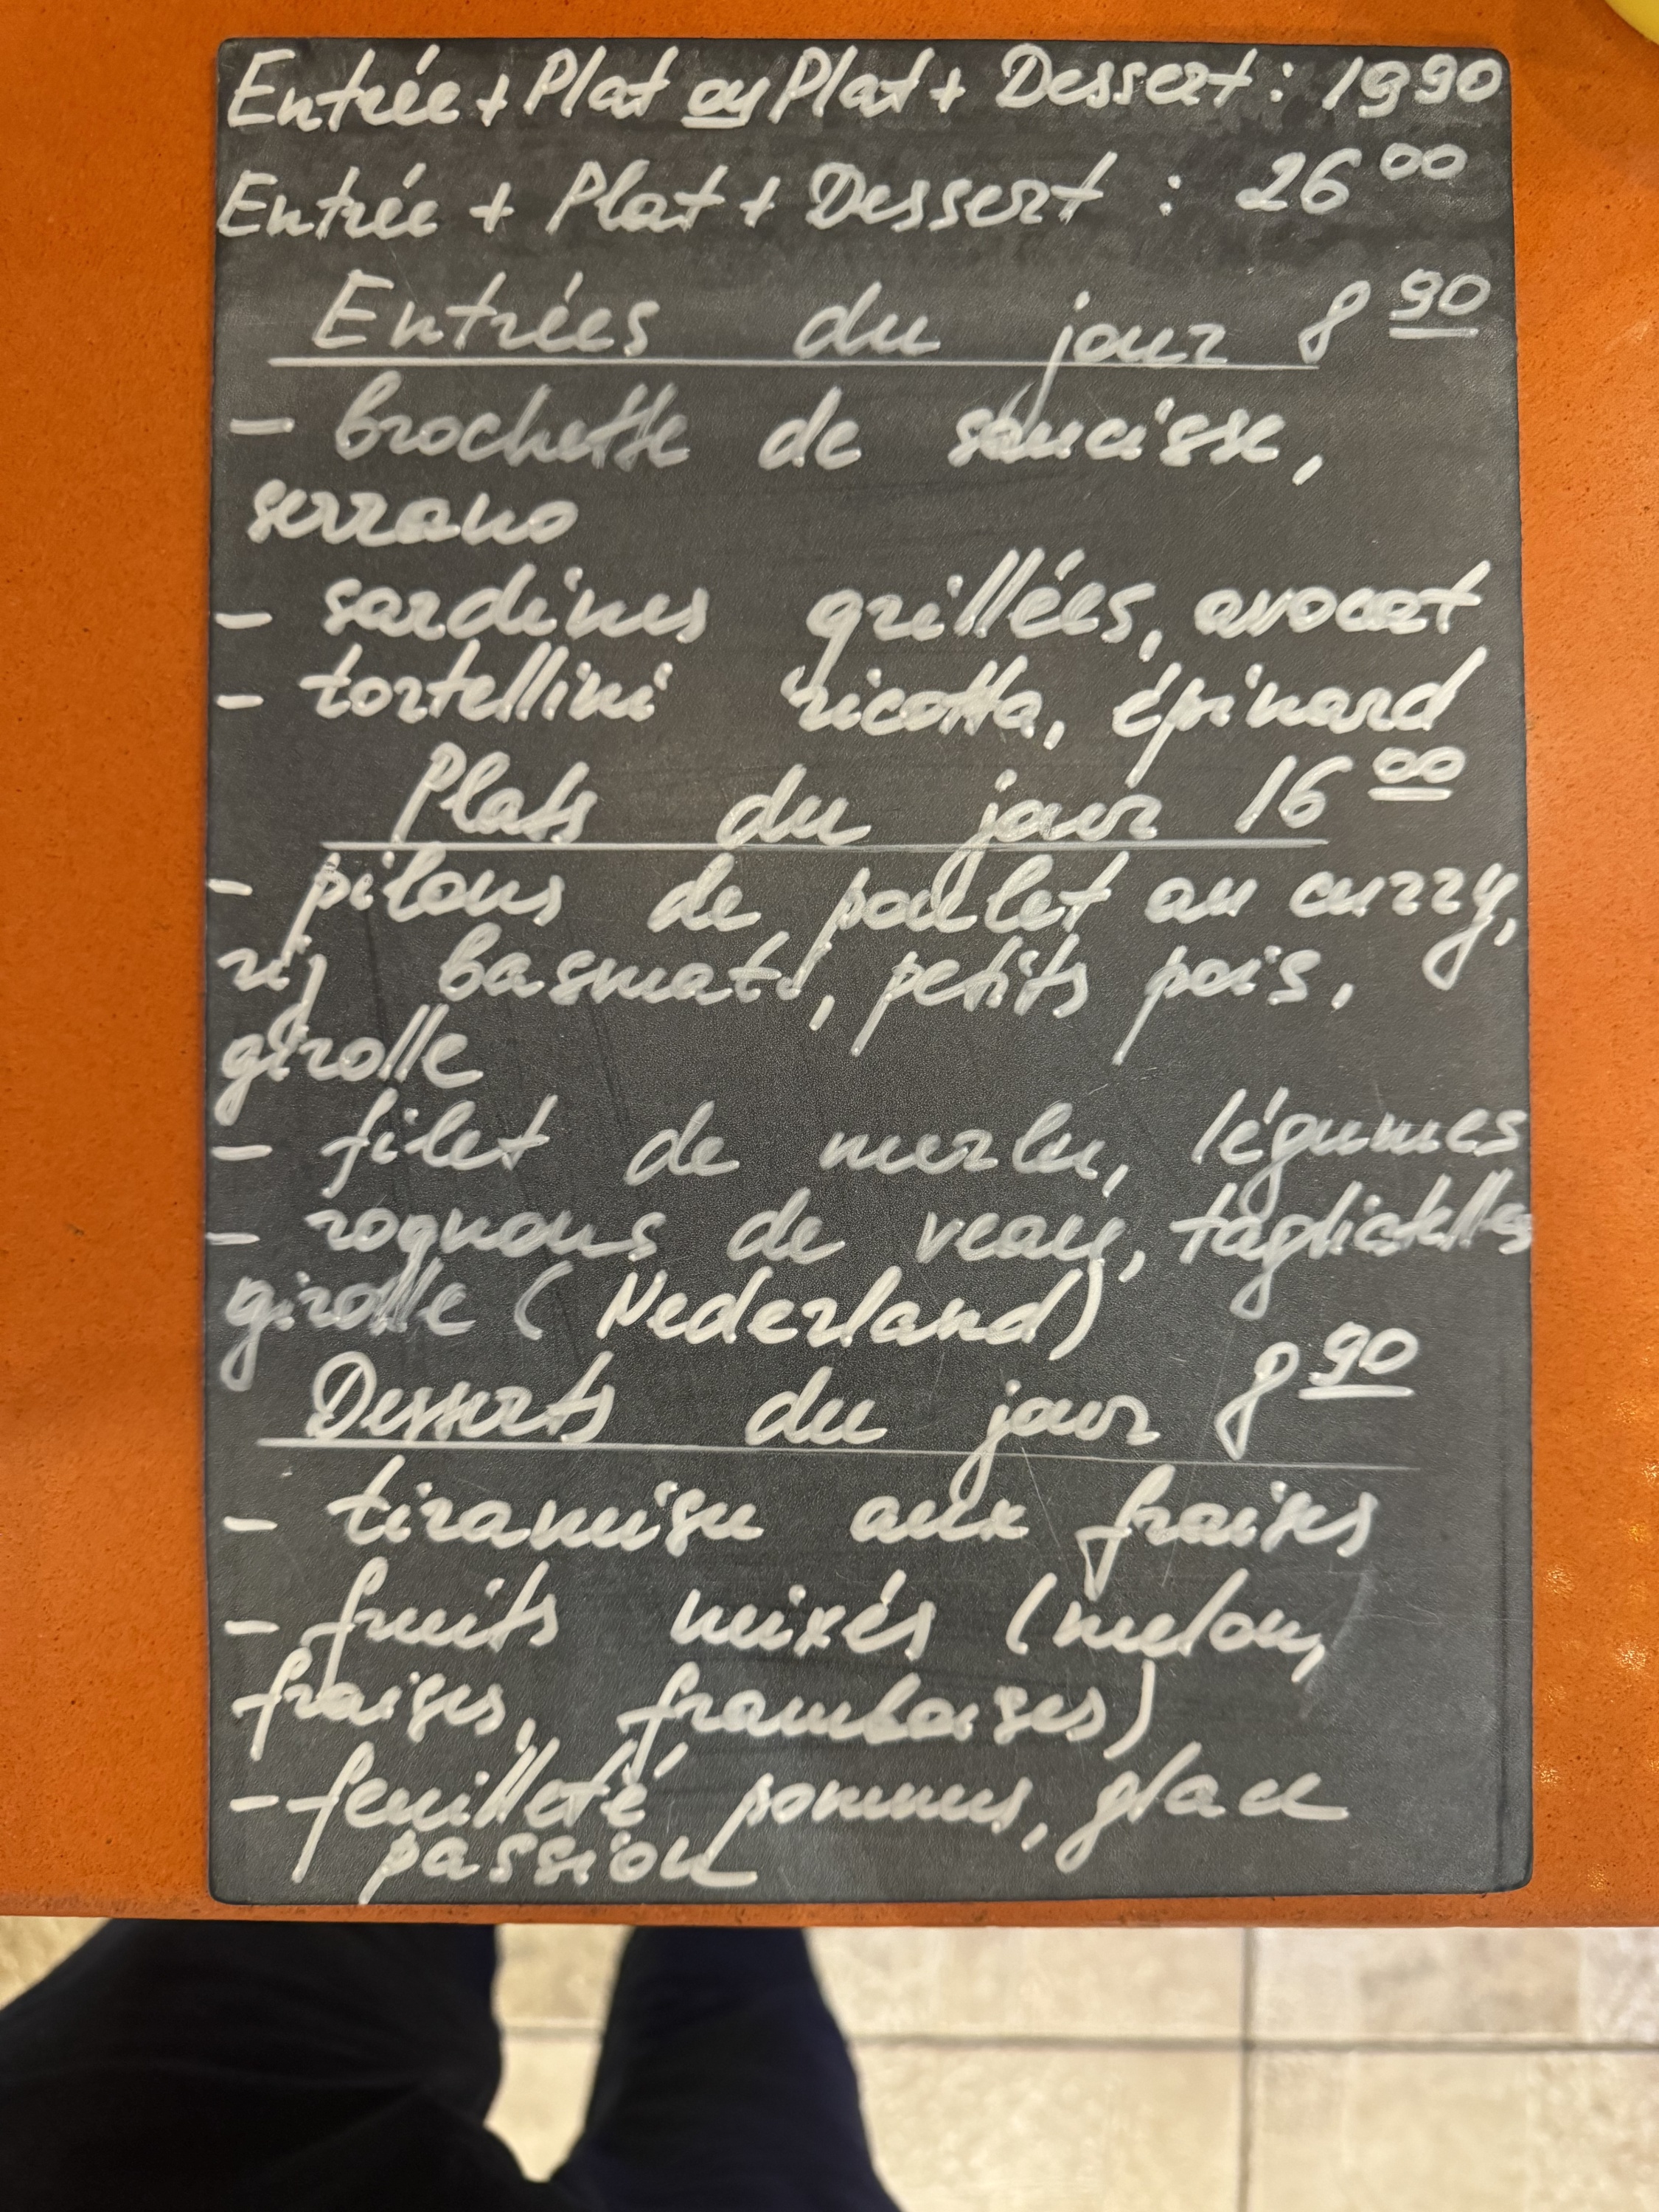 Entrée + Plat ou Plat + Dessert : 19 90
Entrée + Plat + Dessert : 26 00
Entrées du jour 8 90
- brochette de saucisse,
serrano
- sardines grillées, avocat
- tortellini ricotta, épinard
Plats du jour 16 00
- pilons de poulet au curry,
riz basmati, petits pois,
girolle
- filet de merlu, légumes
- rognons de veau, tagliatelles
girolle (Nederland)
Desserts du jour 8 90
- tiramisu aux fraises
- fruits mixés (melon,
fraises, framboises)
- feuilleté pommes, glace
passion